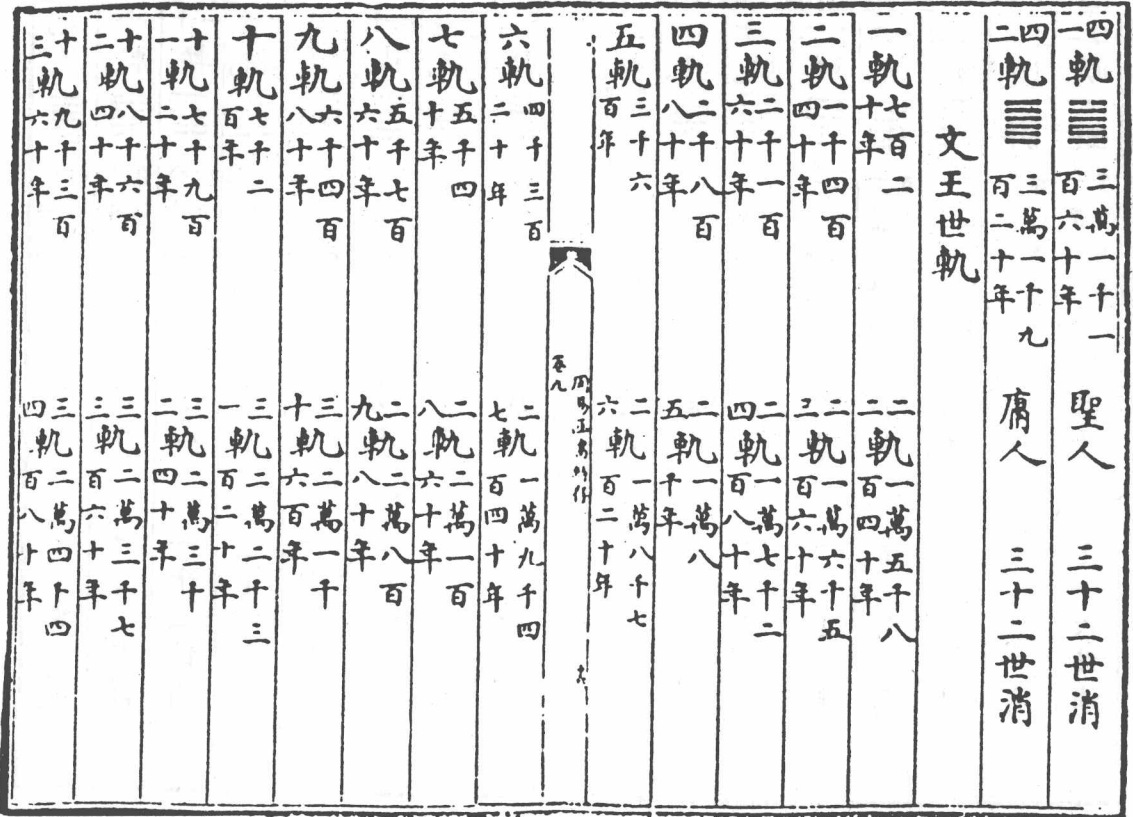 四一軌 三萬一千一百六十年 聖人 三十二世消
四二軌 三萬一千九百二十年 庸人 三十二世消
文王世軌
一軌 七百二十年 二二軌 一萬五千八百四十年
二軌 一千四百四十年 二三軌 一萬六千五百六十年
三軌 二千一百六十年 二四軌 一萬七千二百八十年
四軌 二千八百八十年 二五軌 一萬八千年
五軌 三千六百年 二六軌 一萬八千七百二十年
卷九
六軌 四千三百二十年 二七軌 一萬九千四百四十年
七軌 五千四十年 二八軌 二萬一百六十年
八軌 五千七百六十年 二九軌 二萬八百八十年
九軌 六千四百八十年 三十軌 二萬一千六百年
十軌 七千二百年 三一軌 二萬二千三百二十年
十一軌 七千九百二十年 三二軌 二萬三千四十年
十二軌 八千六百四十年 三三軌 二萬三千七百六十年
十三軌 九千三百六十年 三四軌 二萬四千四百八十年